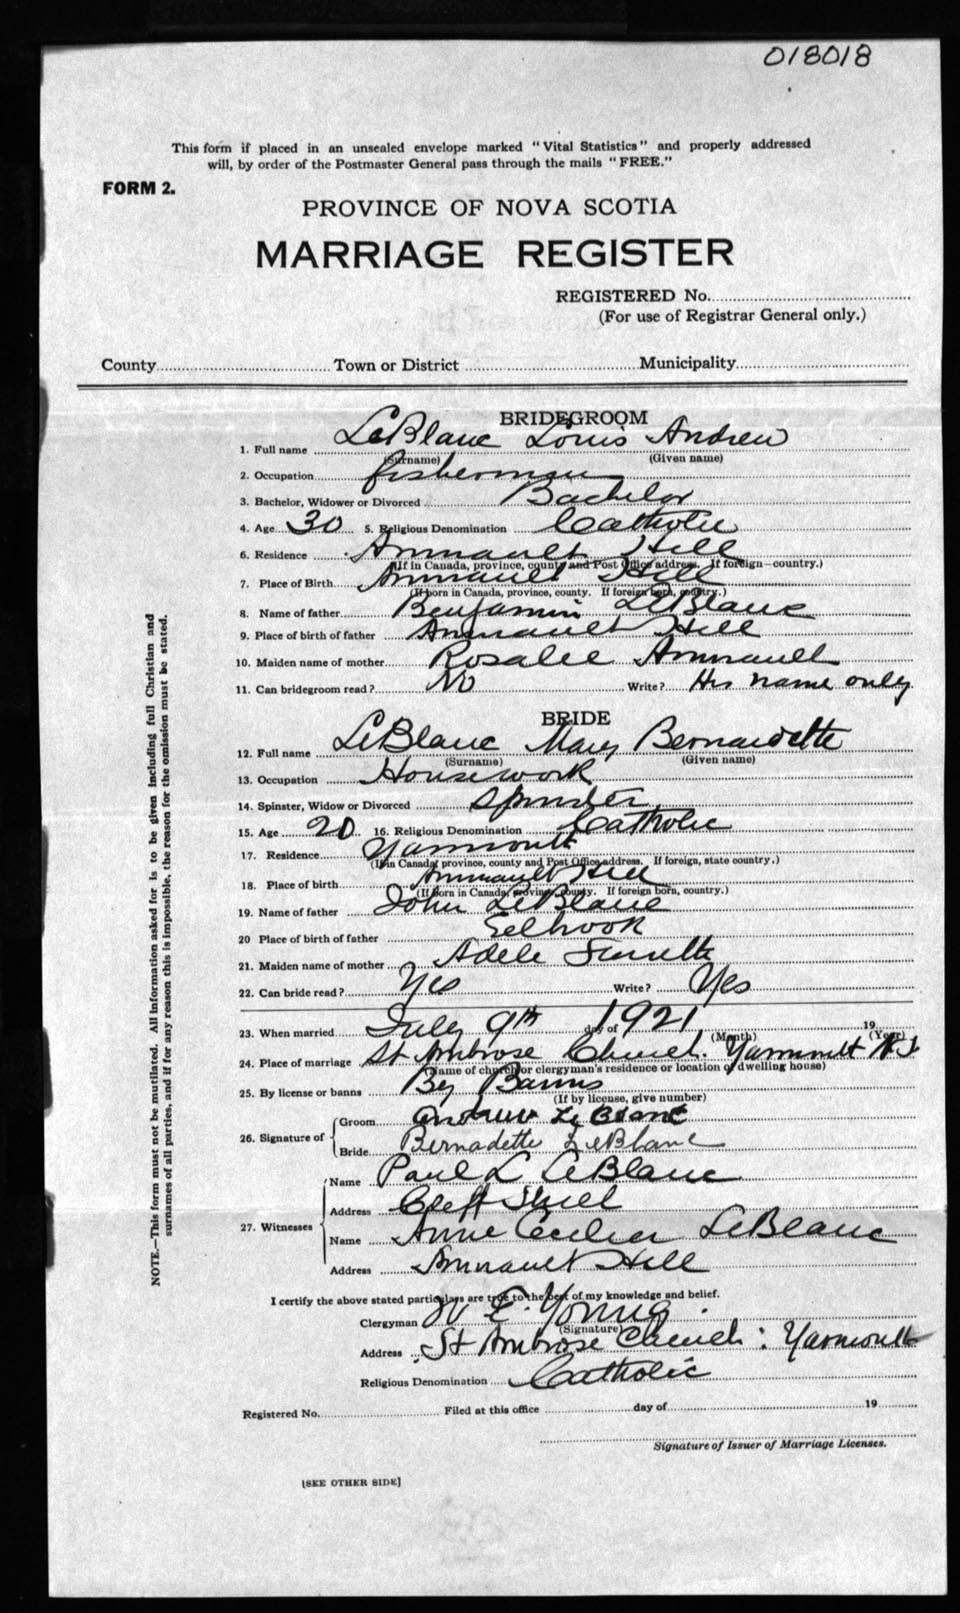 018018
This form if placed in an unsealed envelope marked "Vital Statistics" and properly addressed
will, by order of the Postmaster General pass through the mails "FREE."
FORM 2.
PROVINCE OF NOVA SCOTIA
MARRIAGE REGISTER
REGISTERED No.
(For use of Registrar General only.)
County Town or District Municipality
BRIDEGROOM
1. Full name LeBlanc Louis Andrew
(Surname) (Given name)
2. Occupation fisherman
3. Bachelor, Widower or Divorced Bachelor
4. Age 30 5. Religious Denomination Catholic
6. Residence Amirault Hill
(If in Canada, province, county and Post Office address. If foreign—country.)
7. Place of Birth Amirault Hill
(If born in Canada, province, county. If foreign born, country.)
8. Name of father Benjamin LeBlanc
9. Place of birth of father Amirault Hill
10. Maiden name of mother Rosalee Amirault
11. Can bridegroom read? No Write? His name only
BRIDE
12. Full name LeBlanc Mary Bernardette
(Surname) (Given name)
13. Occupation Housework
14. Spinster, Widow or Divorced Spinster
15. Age 20 16. Religious Denomination Catholic
17. Residence Yarmouth
(If in Canada, province, county and Post Office address. If foreign, state country.)
18. Place of birth Amirault Hill
(If born in Canada, province, county. If foreign born, country.)
19. Name of father John LeBlanc
20 Place of birth of father Eelbrook
21. Maiden name of mother Adele
22. Can bride read? Yes Write? Yes
23. When married July 9th day of 1921 19
(Month) (Year)
24. Place of marriage St Ambrose Church. Yarmouth N.S.
(Name of church or clergyman's residence or location of dwelling house)
25. By license or banns By Banns
(If by license, give number)
26. Signature of Groom Andrew LeBlanc
Bride Bernadette LeBlanc
27. Witnesses
Name Paul L LeBlanc
Address
Name Anne Cecilia LeBlanc
Address Amirault Hill
I certify the above stated particulars are true to the best of my knowledge and belief.
Clergyman W E. Young.
(Signature)
Address St Ambrose Church: Yarmouth
Religious Denomination Catholic
Registered No. Filed at this office day of 19
Signature of Issuer of Marriage Licenses.
[SEE OTHER SIDE]
NOTE.—This form must not be mutilated. All information asked for is to be given including full Christian and
surnames of all parties, and if for any reason this is impossible, the reason for the omission must be stated.